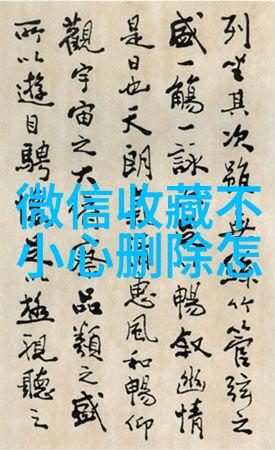 微信收藏不
小心删除怎
列坐其次雖無絲竹管弦之
盛一觴一詠暢叙幽情
是日也天朗惠風和暢仰
觀宇宙之大察品類之盛
所以遊目騁極視聽之